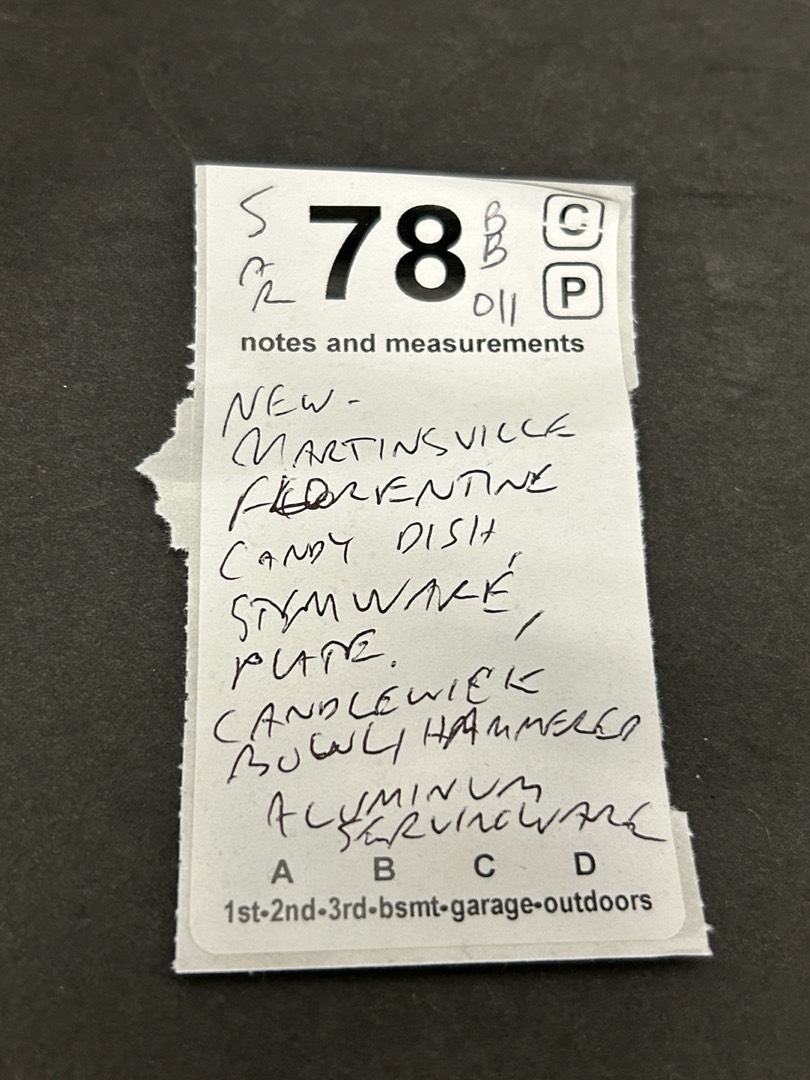 S 78 B C
AR B P
011
notes and measurements
NEW-
MARTINSVILLE
FLORENTINE
CANDY DISH,
STEMWARE,
PLATE.
CANDLEWICK
BOWL, HAMMERED
ALUMINUM
SERVINGWARE
A B C D
1st•2nd•3rd•bsmt•garage•outdoors